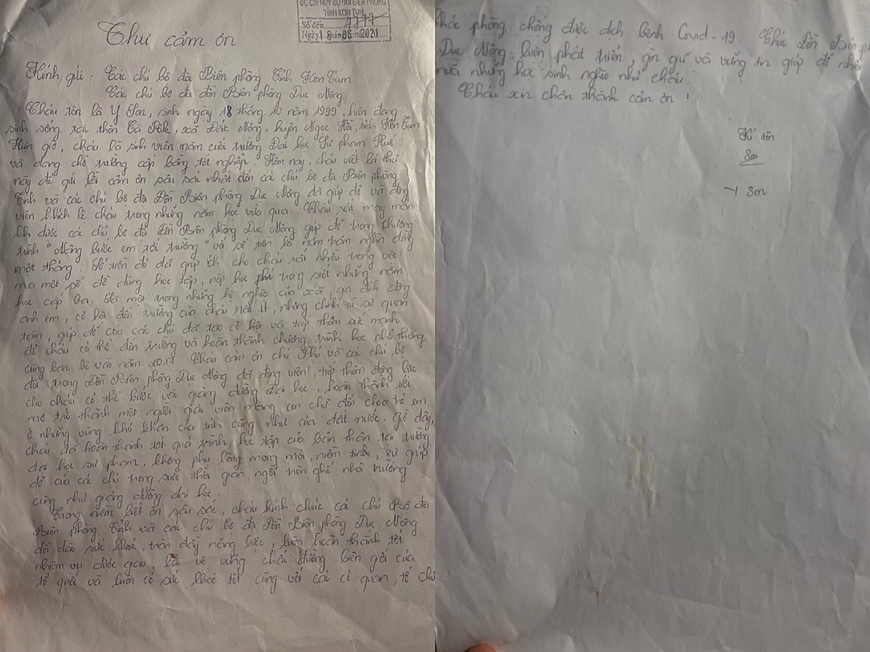 BỘ CHỈ HUY BỘ ĐỘI BIÊN PHÒNG
TỈNH KON TUM
Số đến
Ngày 18 tháng 06 năm 2021
Thư cảm ơn
Kính gửi: Các chú bộ đội Biên phòng Tỉnh Kon Tum
Các chú bộ đội đồn Biên phòng Dục Nông
Cháu tên là Y Son, sinh ngày 18 tháng 10 năm 1999, hiện đang
sinh sống tại thôn Cà Nhảy, xã Đắk Nông, huyện Ngọc Hồi, tỉnh Kon Tum
Hiện giờ, cháu là sinh viên năm cuối trường Đại học Sư phạm Huế
và đang chờ trường cấp bằng tốt nghiệp. Hôm nay, cháu viết lá thư
này để gửi lời cảm ơn sâu sắc nhất đến các chú bộ đội Biên phòng
Tỉnh và các chú bộ đội Đồn Biên phòng Dục Nông đã giúp đỡ và động
viên khích lệ cháu trong những năm học vừa qua. Cháu rất may mắn
khi được các chú bộ đội Đồn Biên phòng Dục Nông giúp đỡ trong chương
trình "Nâng bước em tới trường" với số tiền là năm trăm nghìn đồng
một tháng. Số tiền đó đã giúp ích cho cháu rất nhiều trong việc
mua một số đồ dùng học tập, nộp học phí trong suốt những năm
học cấp ba. Là một trong những hộ nghèo của xã, gia đình đông
anh em, cơ hội đến trường của cháu rất ít, nhưng chính vì sự quan
tâm, giúp đỡ của các chú đã tạo cơ hội và tiếp thêm sức mạnh
để cháu có thể đến trường và hoàn thành chương trình học phổ thông
cùng bạn bè vào năm 2017. Cháu cảm ơn chú Phi và các chú bộ
đội trong Đồn Biên phòng Dục Nông đã động viên, tiếp thêm động lực
cho cháu có thể bước vào giảng đường Đại học, hoàn thành ước
mơ trở thành một người giáo viên mang con chữ đến cho trẻ em
ở những vùng khó khăn của tỉnh cũng như của đất nước. Giờ đây,
cháu đã hoàn thành tốt quá trình học tập của bản thân tại trường
đại học sư phạm, không phụ lòng mong mỏi, niềm tin, sự giúp
đỡ của các chú trong suốt thời gian ngồi trên ghế nhà trường
cũng như giảng đường đại học.
Trong niềm biết ơn sâu sắc, cháu kính chúc các chú Bộ đội
Biên phòng Tỉnh và các chú bộ đội Đồn Biên phòng Dục Nông
dồi dào sức khoẻ, tràn đầy năng lực, luôn hoàn thành tốt
nhiệm vụ được giao, bảo vệ vững chắc đường biên giới của
tổ quốc và luôn có sức khoẻ tốt cùng với các cơ quan, tổ chức
khác phòng chống được dịch bệnh Covid-19. Chúc Đồn Biên ph
Dục Nông luôn phát triển, gần gũi và vững tin giúp đỡ nhiều
nữa những học sinh nghèo như cháu.
Cháu xin chân thành cảm ơn!
Kí tên
Son
Y Son